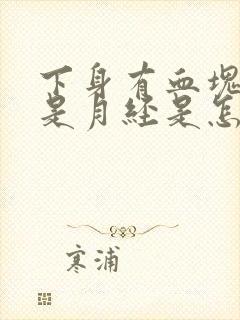 下身有血塊
是月经是怎
寒浦